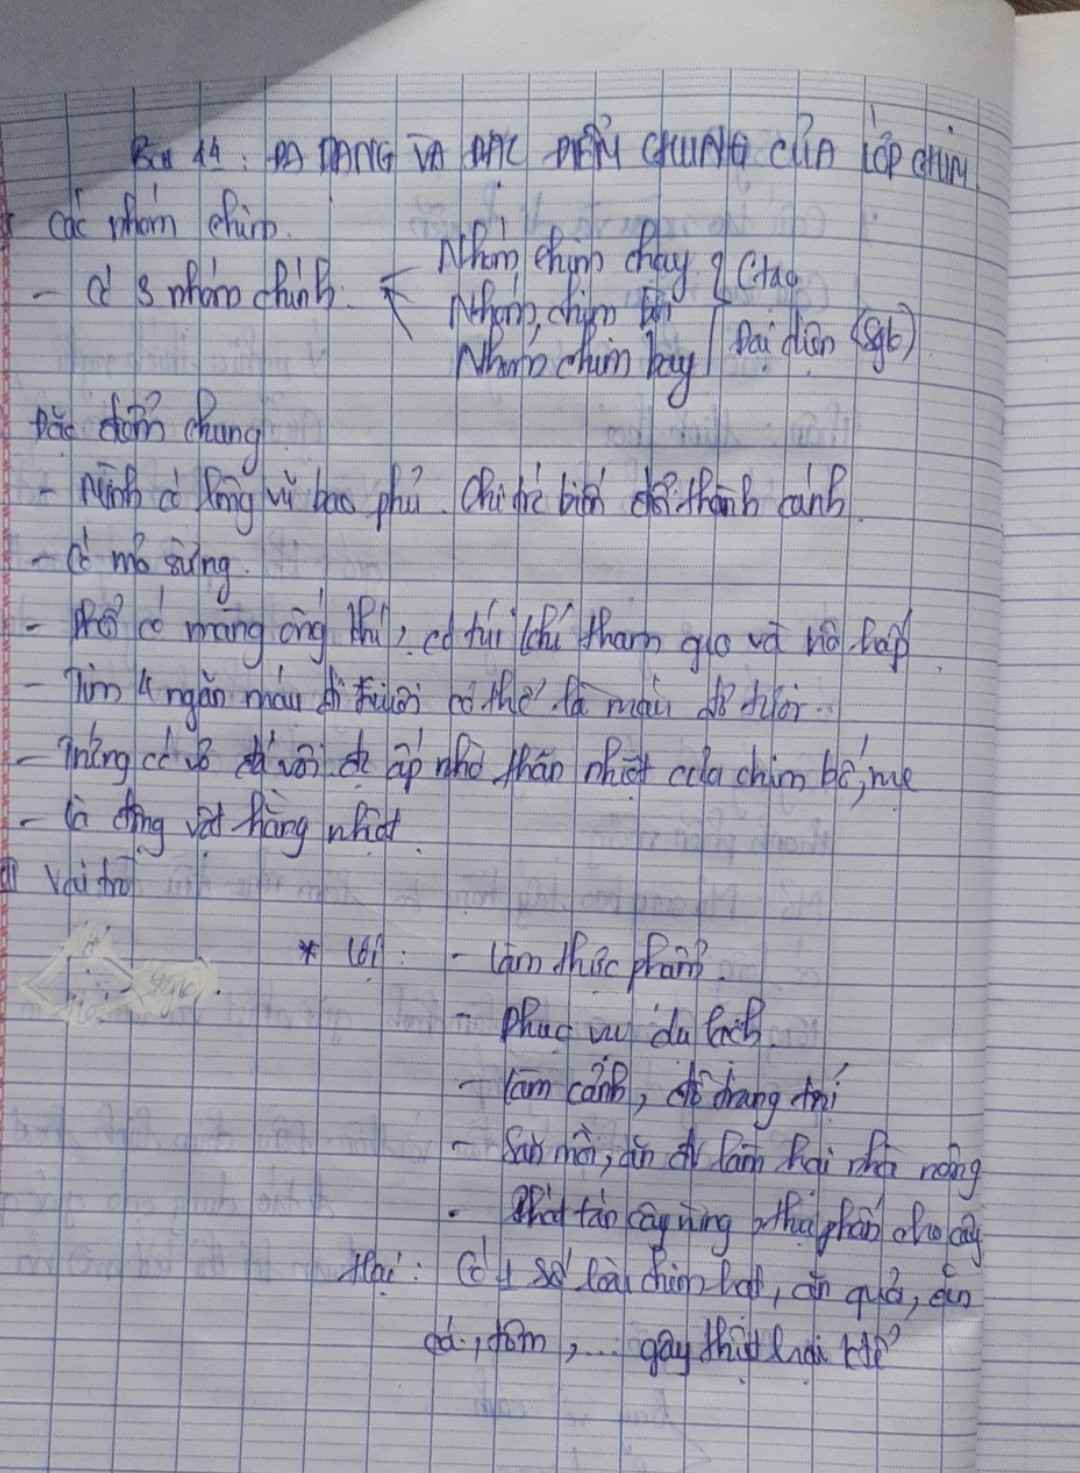 Bài 44: ĐA DẠNG VÀ ĐẶC ĐIỂM CHUNG CỦA LỚP CHIM
I Các nhóm chim.
- Có 3 nhóm chính:
Nhóm chim chạy
Nhóm chim bơi
Nhóm chim bay
Ctạo
Đại diện (Sgk)
Đặc điểm chung
- Mình có lông vũ bao phủ. Chi trc biến đổi thành cánh
- Có mỏ sừng.
- Phổi có mạng ống khí, có túi khí tham gia và hô hấp.
- Tim 4 ngăn máu đi nuôi cơ thể là máu đỏ tươi.
- Trứng có vỏ đá vôi. đc ấp nhờ thân nhiệt của chim bố, mẹ
- là động vật hằng nhiệt.
Vai trò
* Lợi: - làm thực phẩm.
- Phục vụ du lịch.
- làm cảnh, đồ trang trí
- Săn mồi, ăn làm hại nhà nông
- Phát tán cây rừng, thụ phấn cho cây
Hại: Có 1 số loài chim hạt, ăn quả, ăn
cá, tôm, ... gây thiệt hại ktế